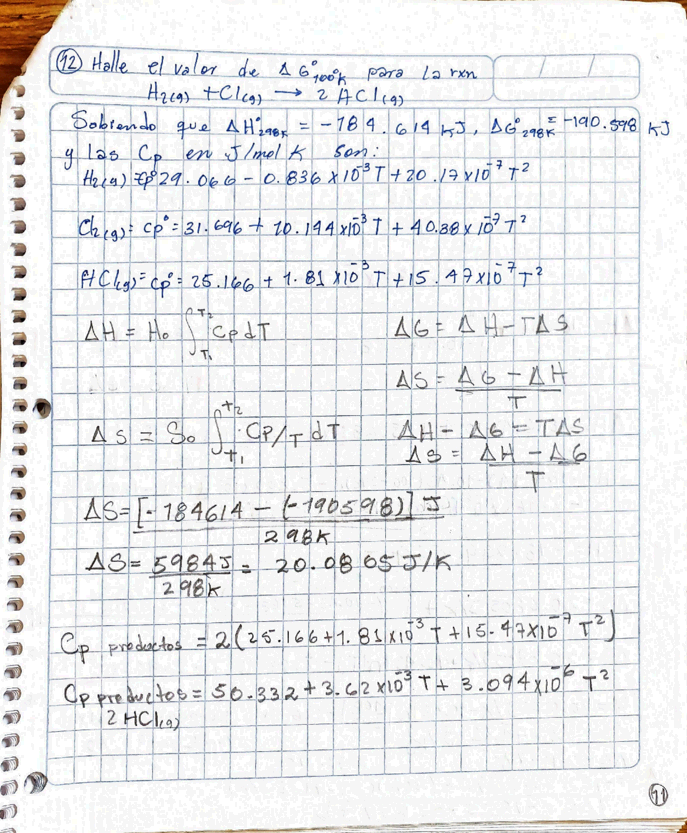 12 Halle el valor de ΔG°1000K para la rxn
H2(g) + Cl(g) → 2 HCl(g)
Sabiendo que ΔH°298K = -184.614 kJ, ΔG°298K = -190.598 kJ
y las Cp en J/mol K son:
H2(g) = Cp° 29.066 - 0.836 x 10⁻³ T + 20.17 x 10⁻⁷ T²
Cl2(g) = Cp° = 31.696 + 10.144 x 10⁻³ T + 40.38 x 10⁻⁷ T²
HCl(g) = Cp° = 25.166 + 1.81 x 10⁻³ T + 15.47 x 10⁻⁷ T²
ΔH = Ho ∫T1T2 Cp dT
ΔG = ΔH - TΔS
ΔS = ΔG - ΔH / T
ΔS = So ∫T1T2 Cp/T dT
ΔH - ΔG = TΔS
ΔS = ΔH - ΔG / T
ΔS = [-184614 - (-190598)] J / 298K
ΔS = 5984J / 298K = 20.0805 J/K
Cp productos = 2(25.166 + 1.81 x 10⁻³ T + 15.47 x 10⁻⁷ T²)
Cp productos = 50.332 + 3.62 x 10⁻³ T + 3.094 x 10⁻⁶ T²
2 HCl(g)
11